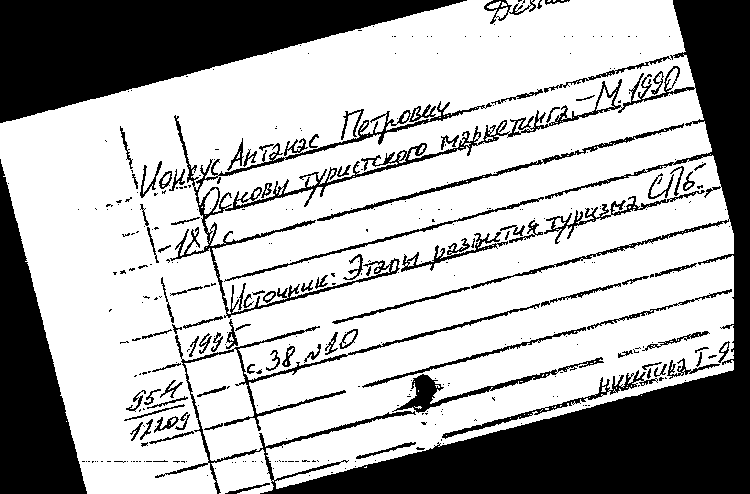 Ионкус, Антанас Петрович
Основы туристского маркетинга. – М, 1990
– 189 с.
Источник: Этапы развития туризма. СПб.,
1995
с. 38, №10
95Н
11209
никитина Т-9